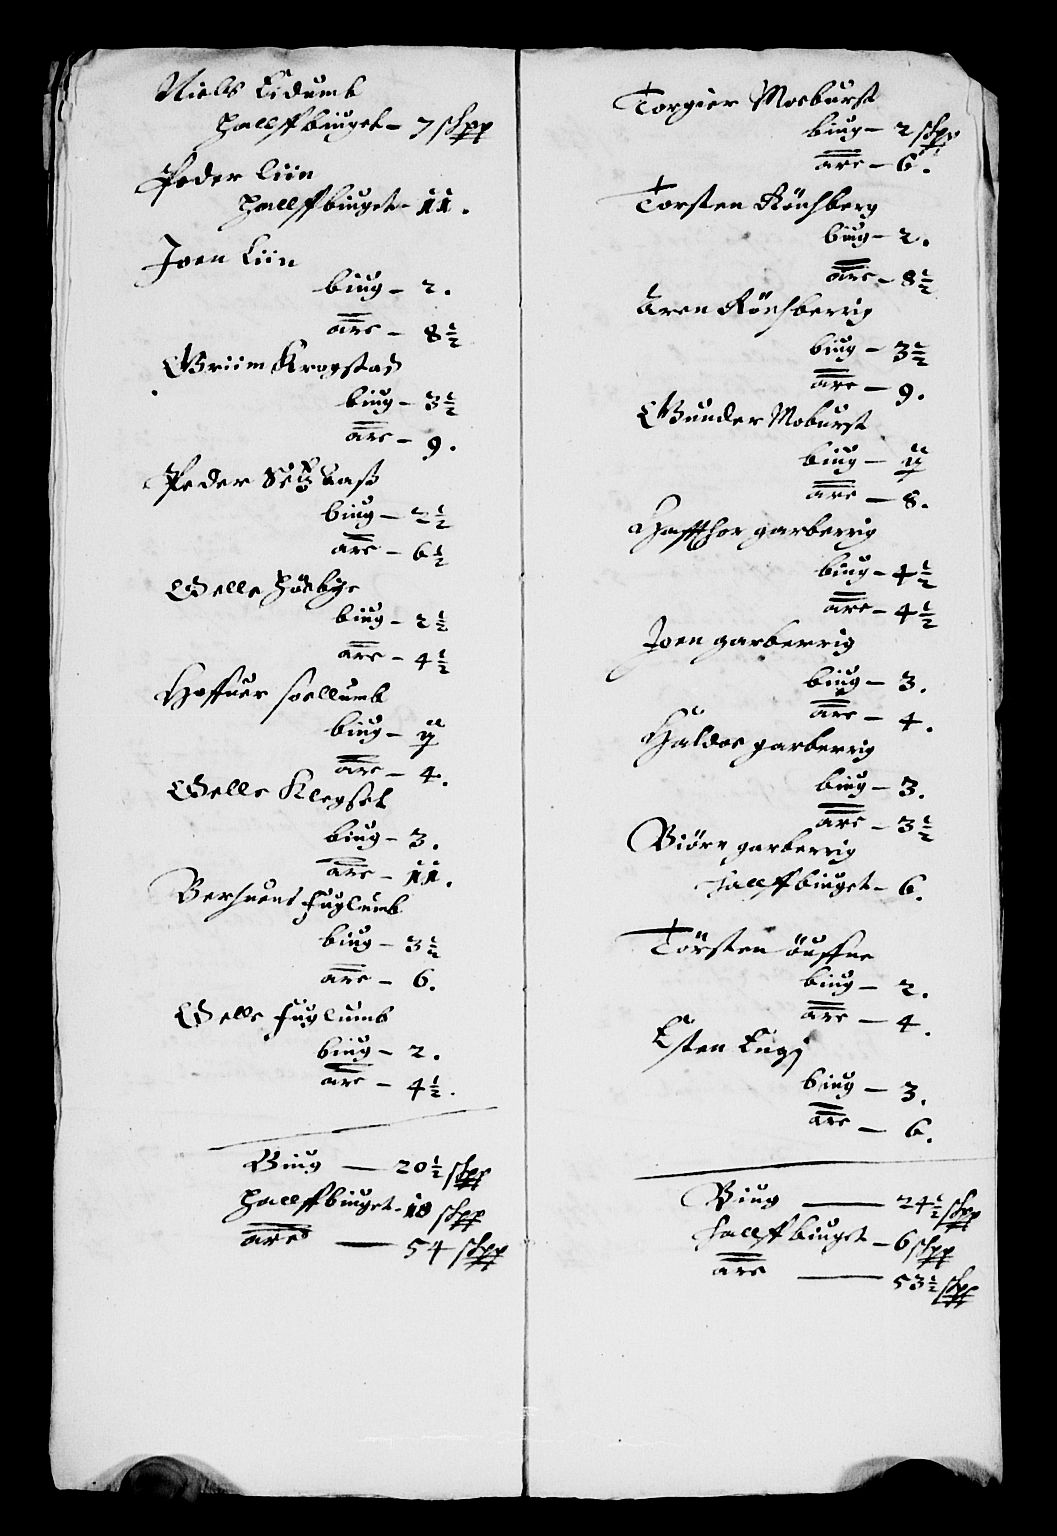 Niels Eidumb
Hallffbiuget – 7 schpp
Peder Liin
Hallffbiuget – 11.
Joen Liin
biug – 2.
are – 8½
Griim Krogstad
biug – 3½
are – 9.
Peder
biug – 2½
are – 6½
Gelle Høsbye
biug – 2½
are – 4½
Hoffuer soellumb
biug – ij
are – 4.
Gelle Klegset
biug – 3.
are – 11.
Bersuend fuglumb
biug – 3½
are – 6.
Gelle fuglumb
biug – 2.
are – 4½.
Biug — 20½ schpp
Hallffbiuget – 18 schpp
are — 54 schpp
Torgier Moeburst
biug – 2 schpp
are – 6.
Torsten Rönsberg
biug – 2.
are – 8½
Aren Rönsberrig
biug – 3½
are – 9.
Gunder Moburst
biug – ij
are – 8.
Haffthor garberrig
biug – 4½
are – 4½
Joen garberrig
biug – 3.
are – 4.
Haldor garberrig
biug – 3.
are – 3½
Biörn garberrig
hallffbiuget – 6.
Törsten öuffne
biug – 2.
are – 4.
Esten Engj
biug – 3.
are – 6.
Biug — 24½ schpp
hallffbiuget – 6 schpp
are — 53½ schpp